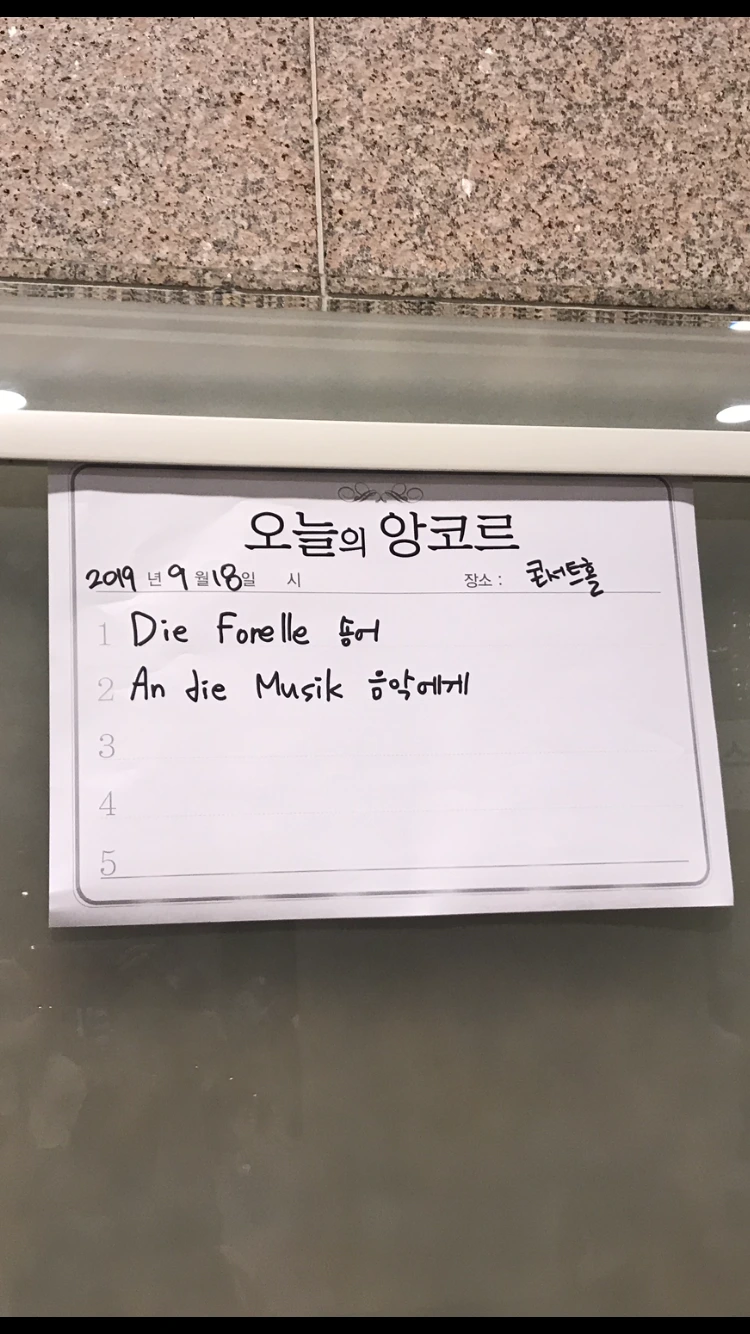 오늘의 앙코르
2019 년 9 월 18 일 시 장소 : 콘서트홀
1 Die Forelle 송어
2 An die Musik 음악에게
3
4
5